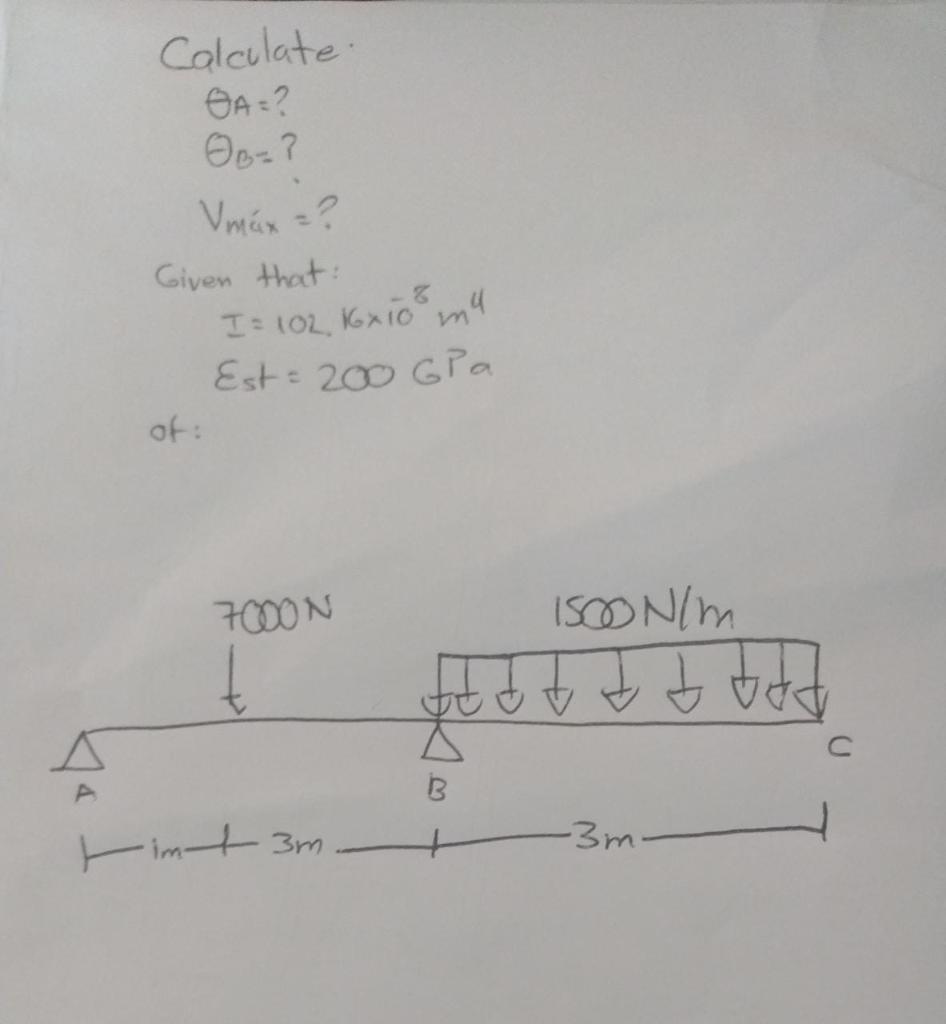 Calculate.
θA=?
θB=?
Vmáx=?
Given that:
I=102.16x10⁻⁸ m⁴
Est=200 GPa
of:
7000N 1500N/m
A B C
1m 3m 3m